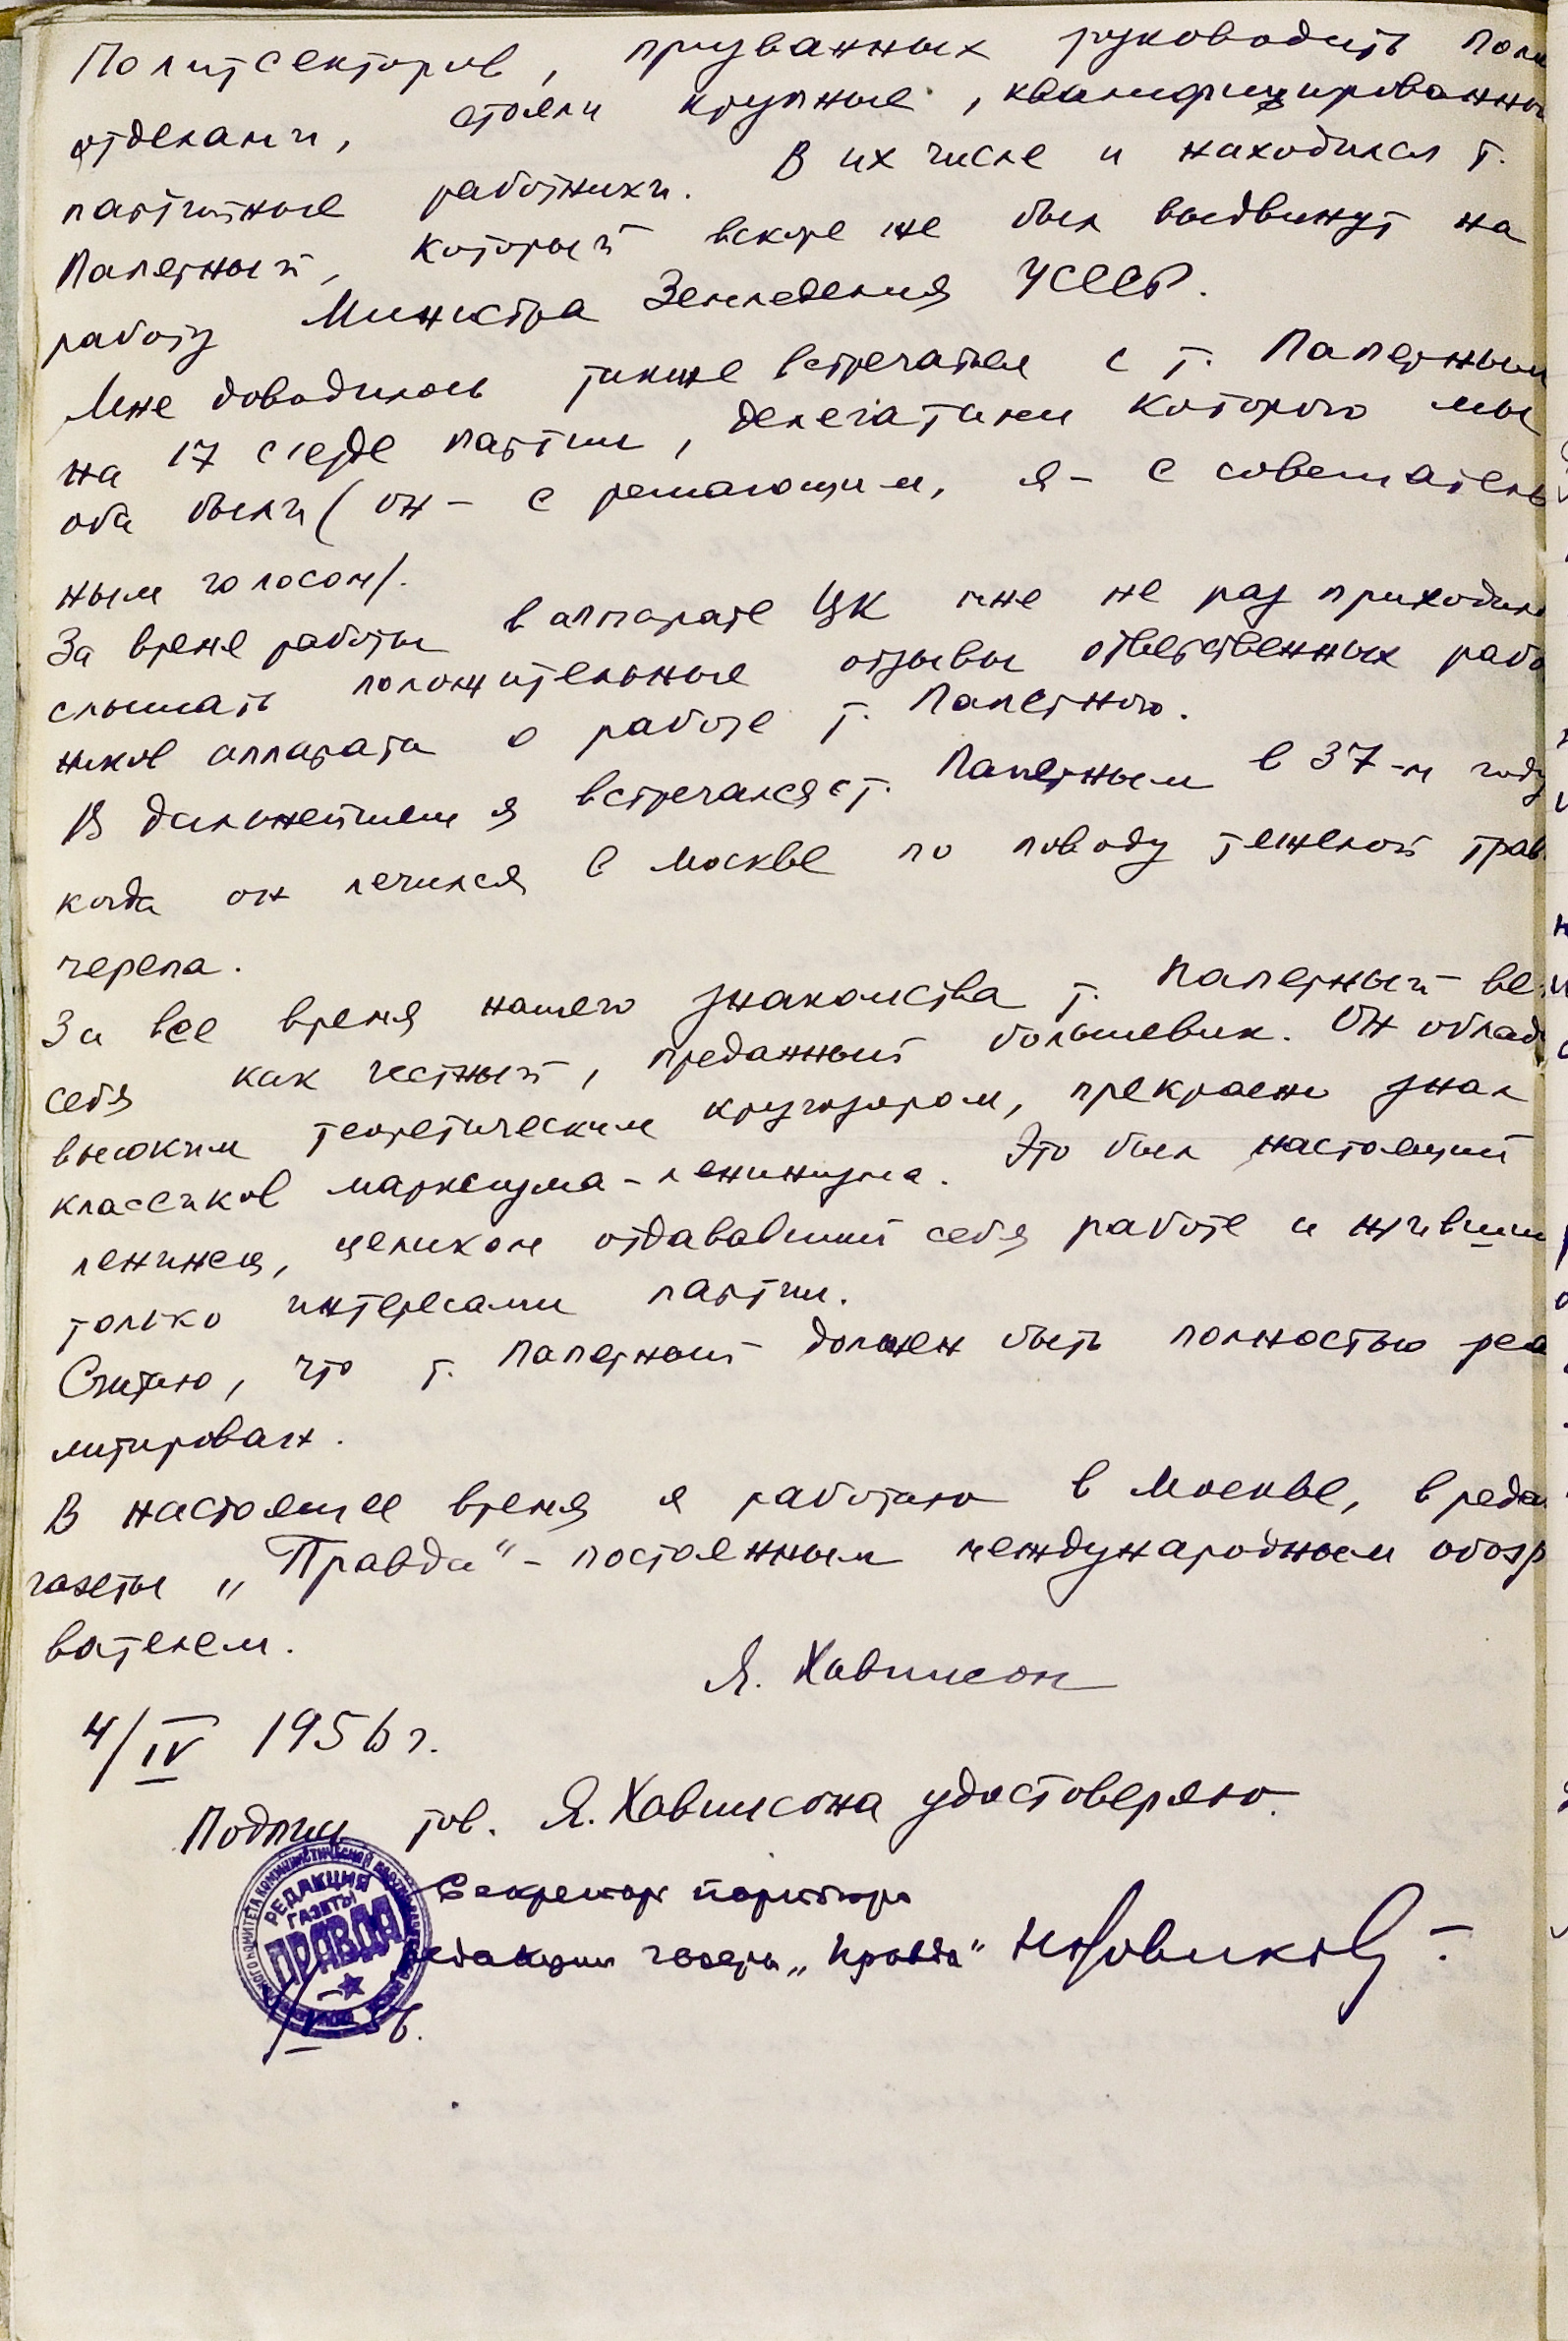 Политсекторов, призванных руководить поли
отделами, стояли крупные, квалифицированны
партийные работники. В их числе и находился т.
Паперный, который вскоре же был выдвинут на
работу Министра Земледелия УССР.
Мне доводилось также встречаться с т. Паперным
на 17 съезде партии, делегатами которого мы
оба были (он – с решающим, я – с совещатель
ным голосом).
За время работы в аппарате ЦК мне не раз приходило
слышать положительные отзывы ответственных рабо
ников аппарата о работе т. Паперного.
В дальнейшем я встречался с т. Паперным в 37-м году
когда он лечился в Москве по поводу тяжелой трав
черепа.
За все время нашего знакомства т. Паперный ве
себя как честный, преданный большевик. Он облад
высоким теоретическим кругозором, прекрасно знал
классиков марксизма-ленинизма. Это был настоящий
ленинец, целиком отдававший себя работе и живший
только интересами партии.
Считаю, что т. Паперный должен быть полностью реа
литирован.
В настоящее время я работаю в Москве, в реда
газеты „Правда" – постоянным международным обозр
вателем.
Я. Хавинсон
4/IV 1956 г.
Подпись тов. Я. Хавинсона удостоверяю.
Секретарь партбюро
редакции газеты „Правда" Новиков
РЕДАКЦИЯ
ГАЗЕТЫ
ПРАВДА